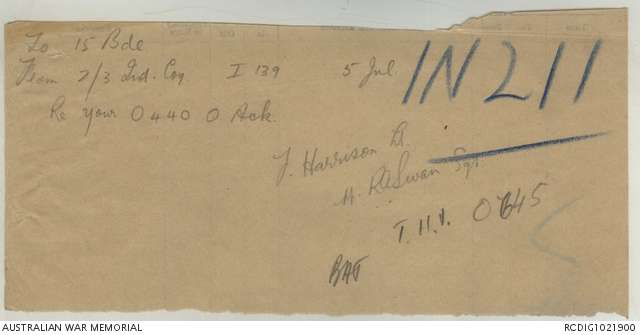 To 15 Bde
From 2/3 Ind. Coy I 139 5 Jul.
IN 211
Re your O440 O Ack.
J. Harrison Lt.
H. R. Swan Sgt.
T.H.I. 0645
AUSTRALIAN WAR MEMORIAL
RCDIG1021900